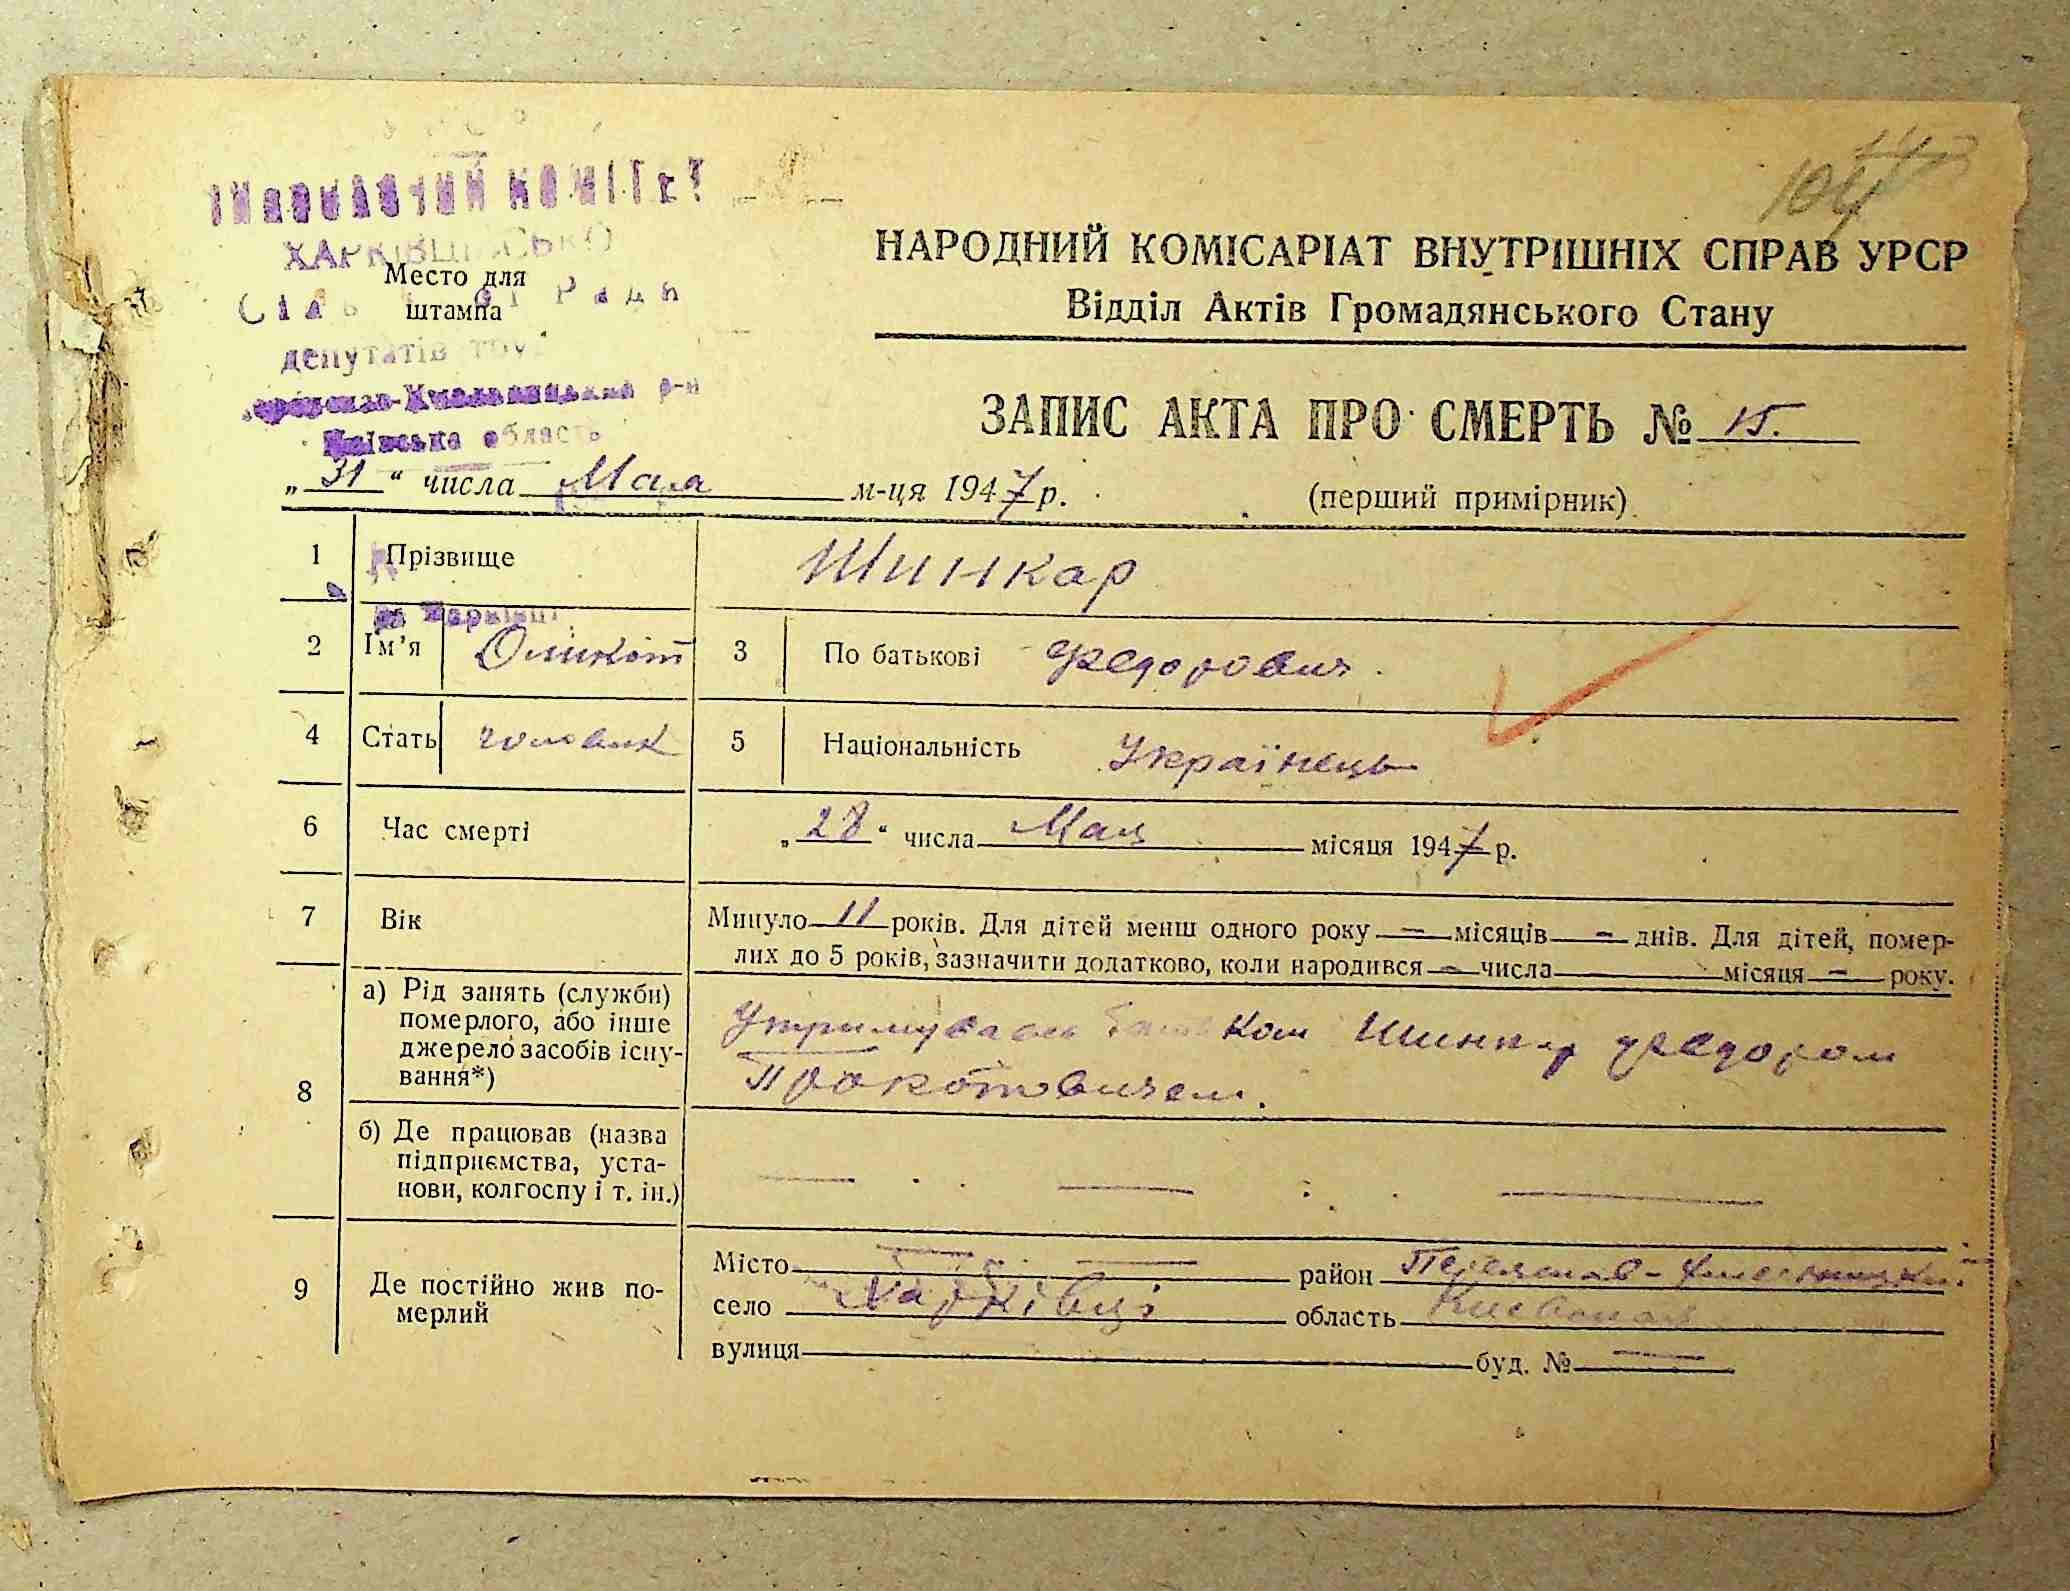 104
КОМІТЕТ
ХАРКІВЦІ
Место для
штампа
депутатів
р-н
Київська область
НАРОДНИЙ КОМІСАРІАТ ВНУТРІШНІХ СПРАВ УРСР
Відділ Актів Громадянського Стану
ЗАПИС АКТА ПРО СМЕРТЬ № 15.
„31“ числа Мая м-ця 1947 р. (перший примірник)
1 Прізвище Шинкар
2 Ім’я 3 По батькові Федорович
4 Стать чоловик 5 Національність Українець
6 Час смерті „28“ числа Мая місяця 1947 р.
7 Вік Минуло 11 років. Для дітей менш одного року — місяців — днів. Для дітей, помер-
лих до 5 років, зазначити додатково, коли народився — числа місяця — року.
8 а) Рід занять (служби)
померлого, або інше
джерело засобів існу-
вання*)
Утримувавсь батьком Шинкар Федором
Прокотовичем.
б) Де працював (назва
підприємства, уста-
нови, колгоспу і т. ін.)
— — —
9 Де постійно жив по-
мерлий
Місто — — район Переяслав-Хмельницкий
село Харківці область Киевская
вулиця буд. № —